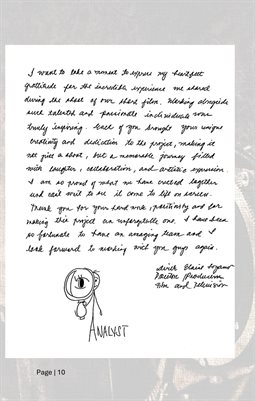 I want to take a moment to express my heartfelt
gratitude for the incredible experience we shared
during the shoot of our short film. Working alongside
such talented and passionate individuals was
truly inspiring. Each of you brought your unique
creativity and dedication to the project, making it
not just a shoot, but a memorable journey filled
with laughter, collaboration, and artistic expression.
I am so proud of what we have created together
and can't wait to see it come to life on screen.
Thank you for your hard work, positivity and for
making this project an unforgettable one. I have been
so fortunate to have an amazing team and I
look forward to working with you guys again.
Film and Television
ANALYST
Page | 10